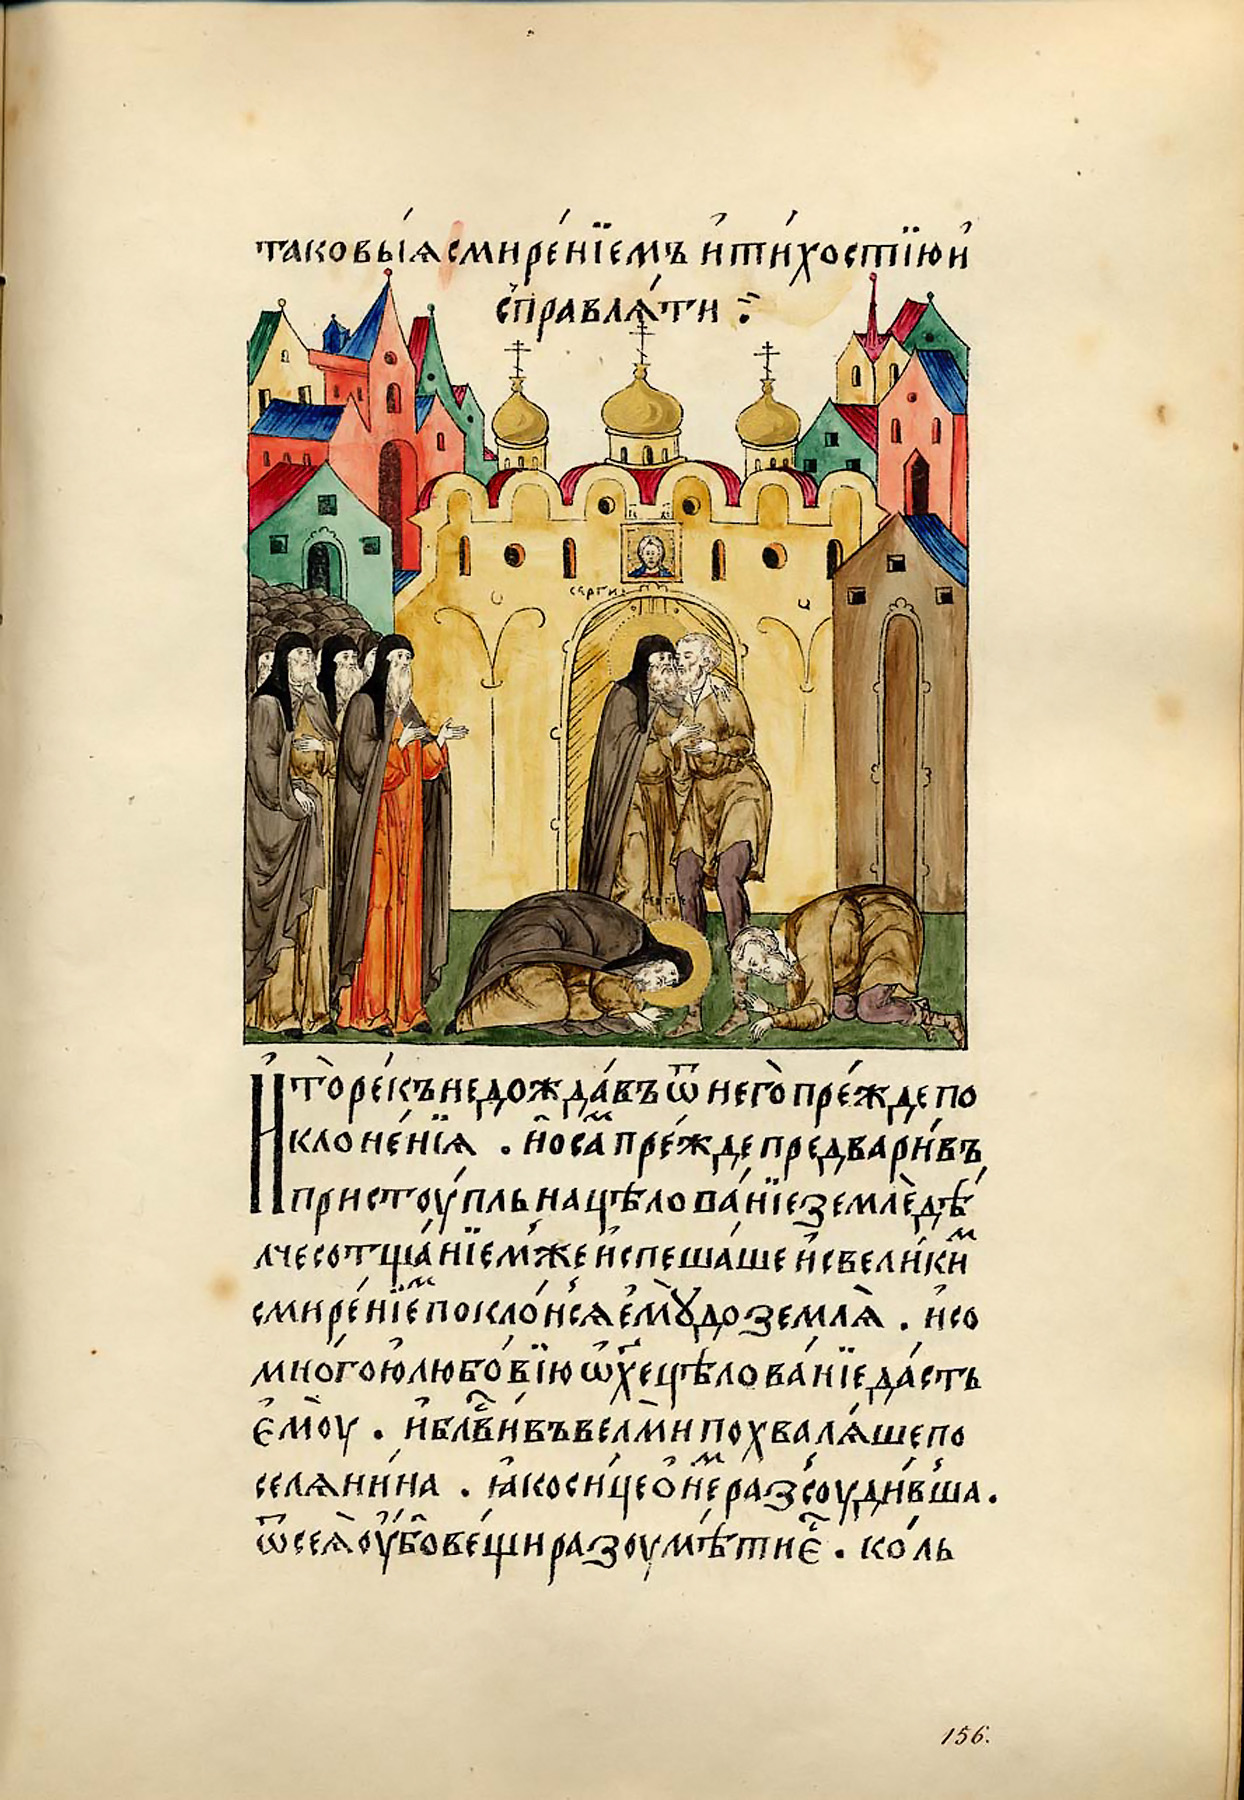 таковы́ѧ смире́нїемъ и҆ ти́хостїю и҆
с҆правлѧ́ти
І҃С Х҃С
СЕРГИ
СЕРГІЕ
И҆ то̀ ре́къ не дожда́въ ѿ него̀ пре́жде по
клоне́нїѧ . но̑ са́м пре́жде предвари́въ
пристоу́пль на цѣлова́нїе земледѣ́
лче со тща́нїемже и҆ спешаше и҆ с вели́ким
смире́нїем поклони́сѧ е҆мꙋ̀ до землѧ̀ . и҆ со
мно́гою любо́вїю ѡ҆ х҃е цѣлова́нїе да́сть
е҆моу̀ . и҆ бл҃вивъ велми похвалѧ́ше по
селѧни́на . ꙗ҆ко си́це о҆ нем разсоуди́вша .
ѿ сеѧ̀ оу҆́бо ве́щи разоумѣ́ти е҃ . ко́ль
156.